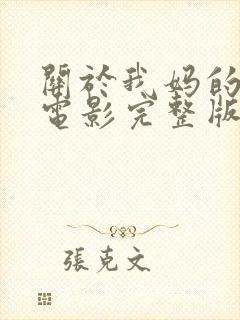 關於我媽的
電影完整版
張克文